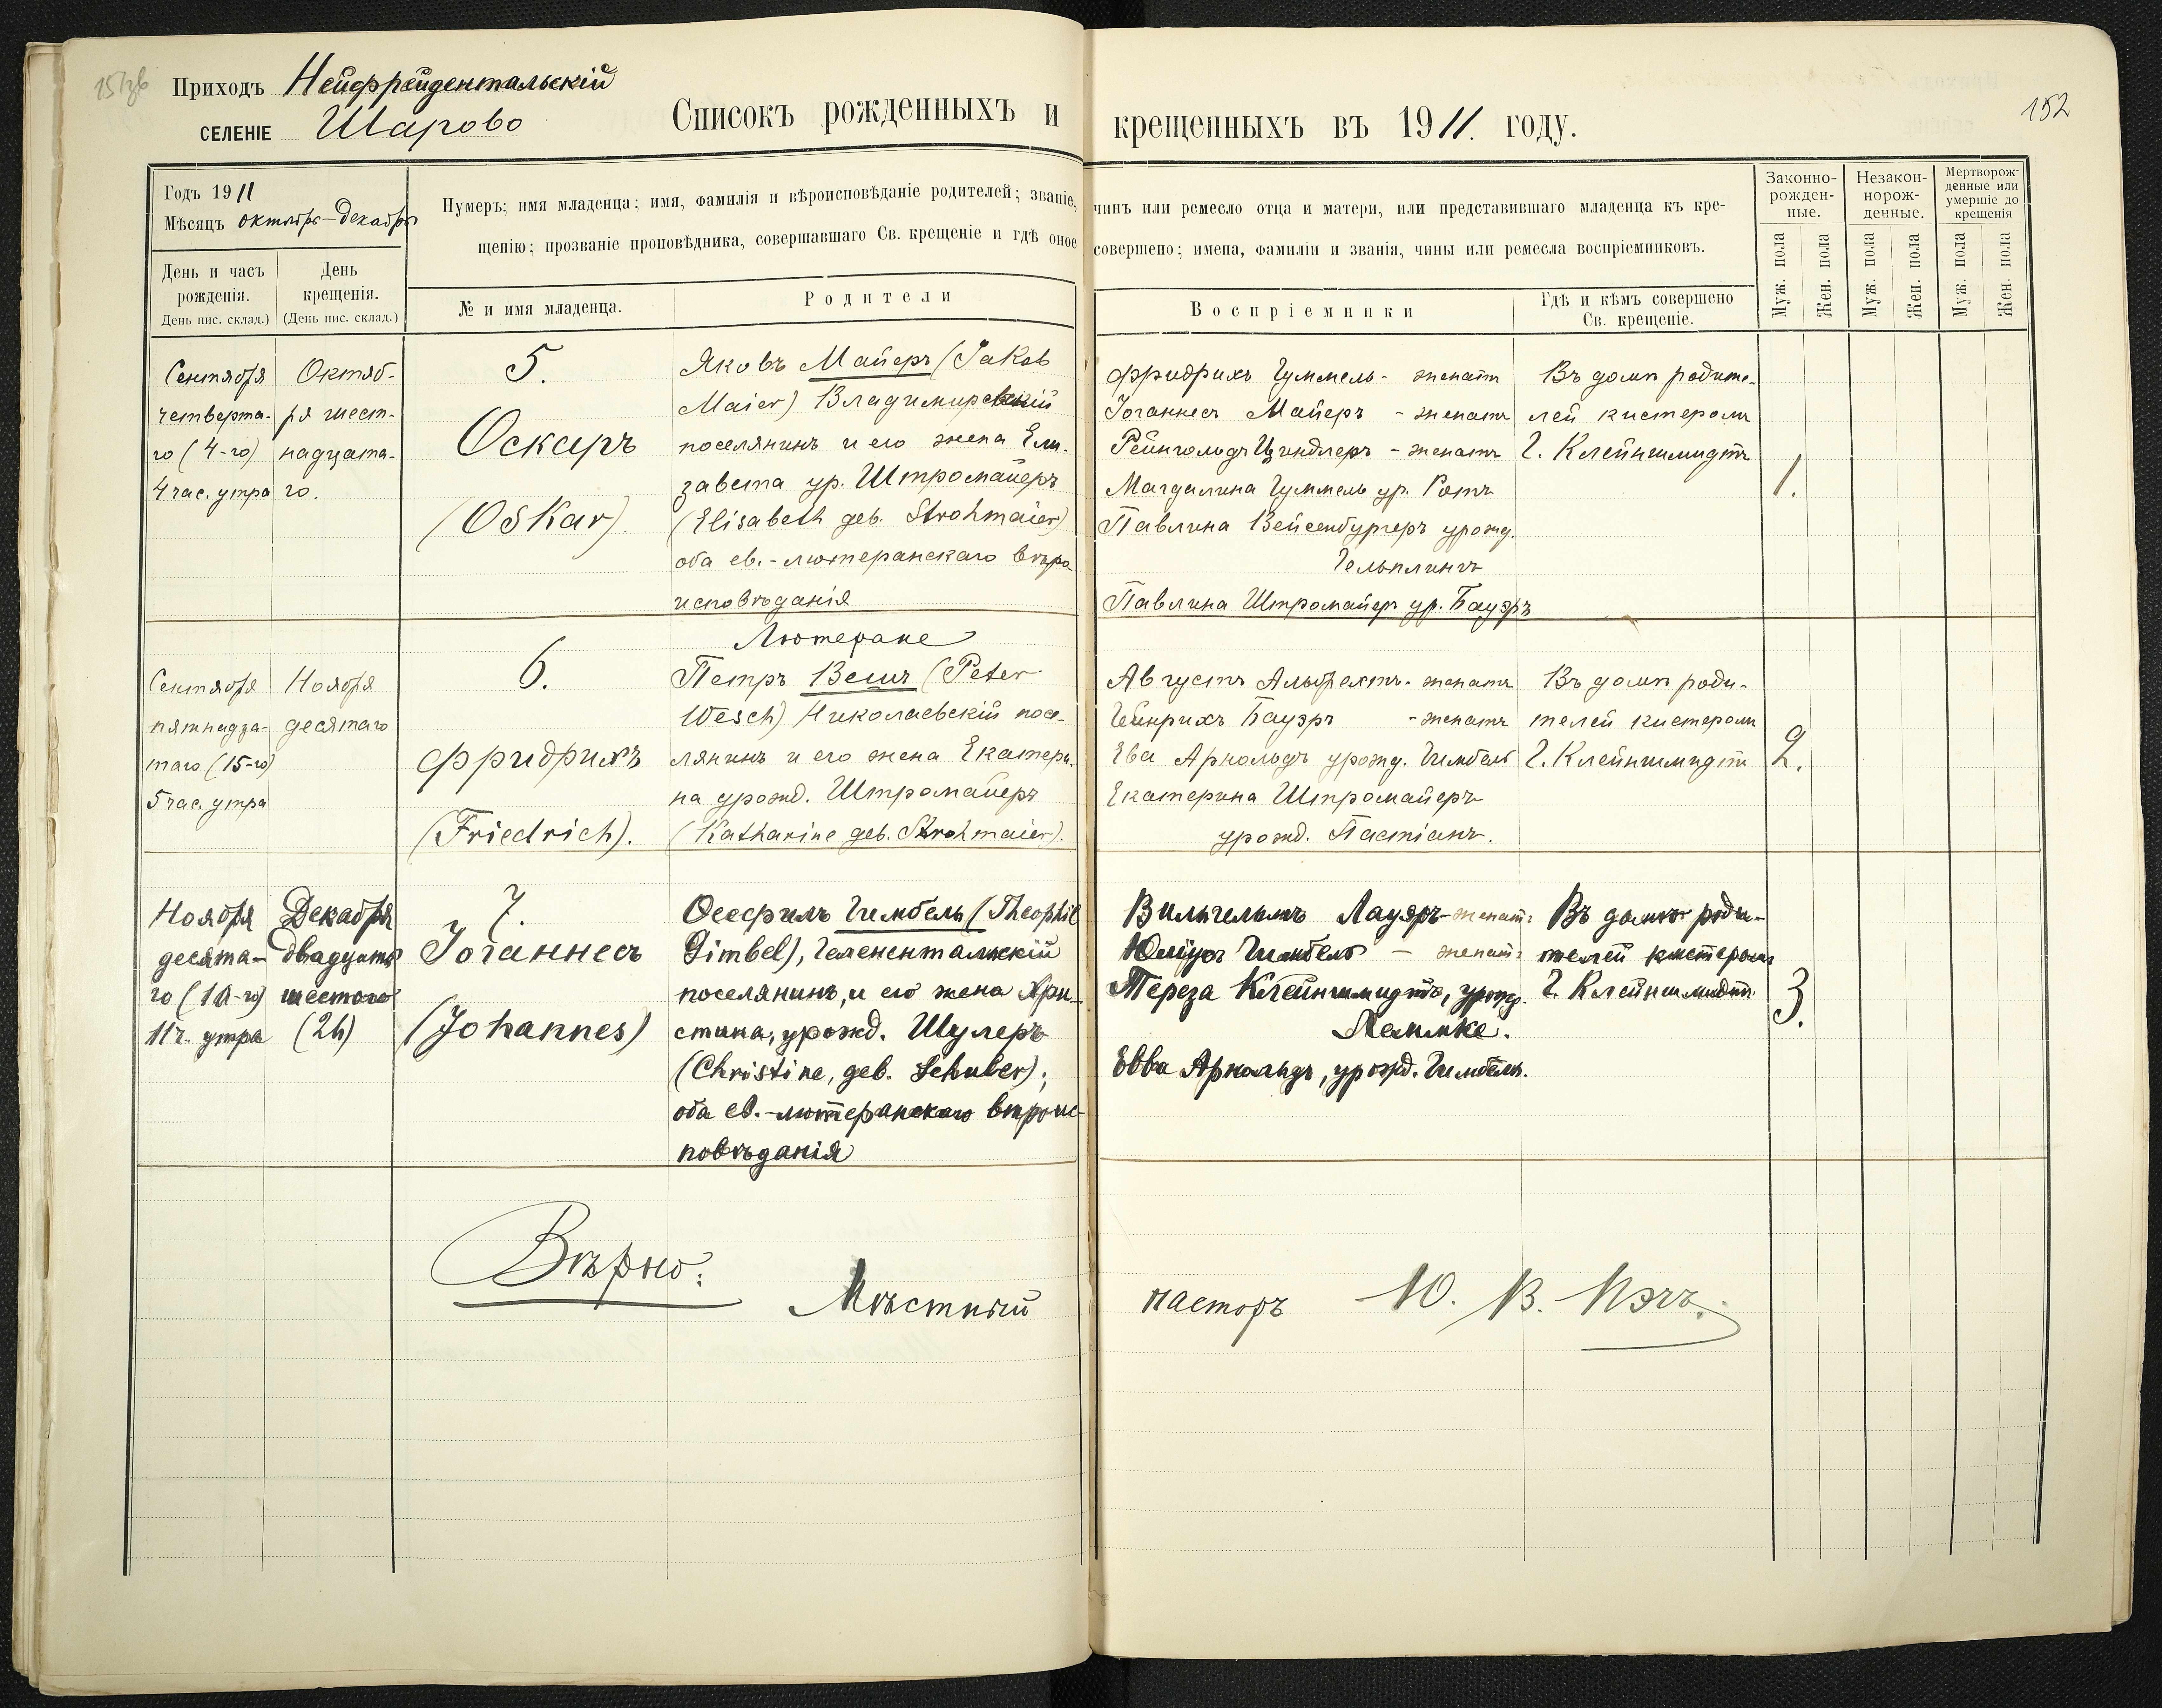 Приходъ Нейфрейдентальскій
селеніе Шарово
Списокъ рожденныхъ и крещенныхъ въ 1911 году.
152
Годъ 1911
Мѣсяцъ октябрь-декабрь
День и часъ рожденія.
День пис. склад.)
День крещенія.
(День пис. склад.)
Нумеръ; имя младенца; имя, фамилія и вѣроисповѣданіе родителей; званіе, чинъ или ремесло отца и матери, или представившаго младенца къ кре-
щенію; прозваніе проповѣдника, совершавшаго Св. крещеніе и гдѣ оное совершено; имена, фамиліи и званія, чины или ремесла воспріемниковъ.
№ и имя младенца.
Родители
Воспріемники
Гдѣ и кѣмъ совершено
Св. крещеніе.
Законно-
рожден-
ные.
Незакон-
норож-
денные.
Мертворож-
денные или
умершіе до
крещенія
Муж. пола
Жен. пола
Муж. пола
Жен. пола
Муж. пола
Жен. пола
Сентября
четверта-
го (4-го)
4 час. утра
Октяб-
ря шест-
надцата-
го.
5.
Оскаръ
(Oskar).
Яковъ Майеръ (Jakob
Maier) Владимирскій
поселянинъ и его жена Ели-
завета ур. Штромайеръ
(Elisabeth geb. Strohmaier)
оба ев.-лютеранскаго вѣро
исповѣданія
Фридрихъ Гуммель - женатъ
Іоганнесъ Майеръ - женатъ
Рейнгольдъ Циндлеръ - женатъ
Магдалина Гуммель ур. Ротъ
Павлина Вейсенбургеръ урожд.
Гельплингъ
Павлина Штромайеръ ур. Бауэръ
Въ домѣ родите-
лей кистеромъ
Г. Клейншмидтъ
1.
Сентября
пятнадца-
таго (15-го)
5 час. утра
Ноября
десятаго
6.
Фридрихъ
(Friedrich).
Лютеране
Петръ Вешъ (Peter
Wesch) Николаевскій посе-
лянинъ и его жена Екатери-
на урожд. Штромайеръ
(Katharine geb. Strohmaier).
Августъ Альбрехтъ - женатъ
Гейнрихъ Бауэръ - женатъ
Ева Арнольдъ урожд. Гимбель
Екатерина Штромайеръ
урожд. Пастіанъ.
Въ домѣ роди-
телей кистеромъ
Г. Клейншмидтъ
2.
Ноября
десята-
го (10-го)
11 ч. утра
Декабря
двадцать
шестого
(26)
7.
Іоганнесъ
(Johannes)
Ѳеофилъ Гимбель (Theophil
Gimbel), Гелененталскій
поселянинъ, и его жена Хри-
стина, урожд. Шулеръ
(Christine, geb. Schuler);
оба ев.-лютеранскаго вѣроис-
повѣданія
Вильгельмъ Лауэръ - женатъ
Юліусъ Гимбель - женатъ
Тереза Клейншмидтъ, урожд.
Лемке.
Евва Арнольдъ, урожд. Гимбель.
Въ домѣ роди-
телей кистеромъ
Г. Клейншмидтъ
3.
Вѣрно:
Мѣстный пасторъ